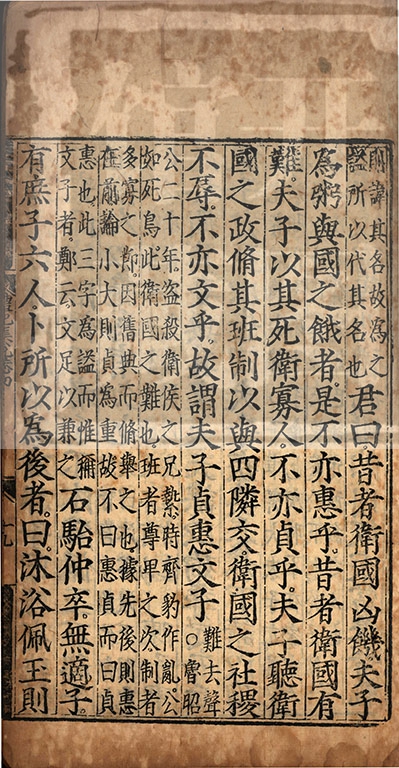 則諱其名故為之
諡所以代其名也
君曰昔者衛國凶饑夫子
為粥與國之餓者。是不亦惠乎。昔者衛國有
難。夫子以其死衛寡人。不亦貞乎。夫子聽衛
國之政。脩其班制。以與四隣交。衛國之社稷
不辱。不亦文乎。故謂夫子貞惠文子
難去聲
○魯昭
公二十年。盜殺衛侯之兄縶。時齊豹作亂。公
如死鳥。此衛國之難也。班者尊卑之次。制者
多寡之節。因舊典而脩舉之也。據先後則惠
在前。論小大則貞為重。故不曰惠貞而曰貞
惠也。此三字為謚。而惟稱
文子者。鄭云。文足以兼之
石駘仲卒。無適子。
有庶子六人。卜所以為後者。曰。沐浴佩玉則